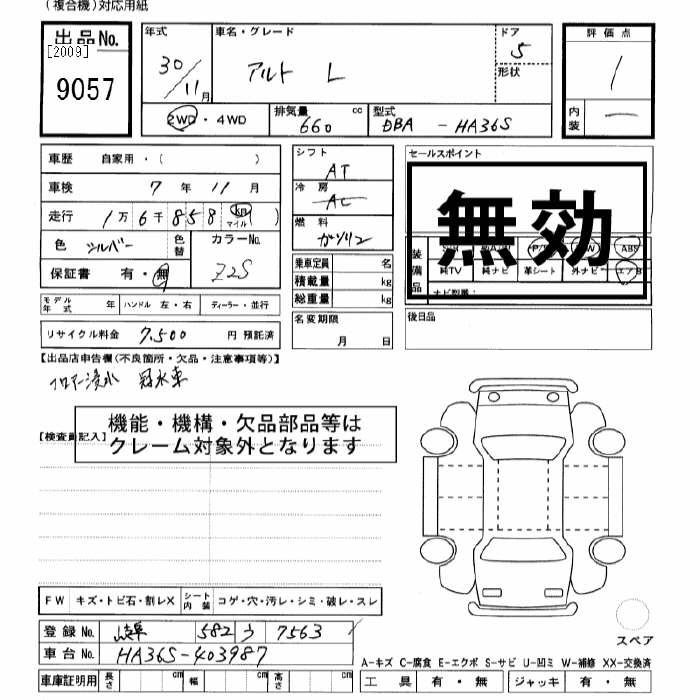 (複合機)対応用紙
出品No.
[2009]
9057
年式 30/11月
車名・グレード アルト L
ドア 5
形状
2WD・4WD
排気量 660 cc
型式 DBA - HA36S
評価点 1
内装 一
車歴 自家用・( )
車検 7年 11月
走行 1万6千858 km マイル )
色 シルバー 色替 カラーNo. Z2S
保証書 有・無
シフト AT
冷房 AC
燃料 ガソリン
乗車定員 名
積載量 kg
総重量 kg
セールスポイント
無効
装備品
純TV 純ナビ 革シート 外ナビ エアB
ABS
ナビ型番:
モデル年式 年 ハンドル 左・右 ディーラー・並行
名変期限 月 日
後日品
リサイクル料金 7,500 円 預託済
【出品店申告欄(不良箇所・欠品・注意事項等)】
フロアー浸水 冠水車
機能・機構・欠品部品等は
クレーム対象外となります
【検査員記入】
FW キズ・トビ石・割レX シート内装 コゲ・穴・汚レ・シミ・破レ・スレ
登録No. 岐阜 582 ウ 7563
車台No. HA36S-403987
車庫証明用 長さ cm 幅 cm 高さ cm
スペア
A-キズ C-腐食 E-エクボ S-サビ U-凹ミ W-補修 XX-交換済
工具 有・無 ジャッキ 有・無